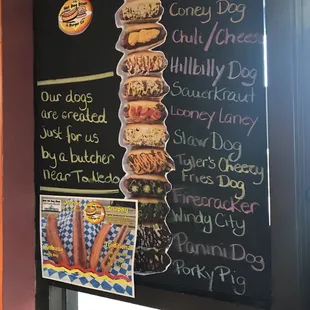 Coney Dog
Chili/Cheese
Hillbilly Dog
Sauerkraut
Looney Laney
Slaw Dog
Tyler's Cheezy
Fries Dog
Firecracker
Windy City
Panini Dog
Porky Pig
Our dogs
are created
just for us
by a butcher
near Toledo